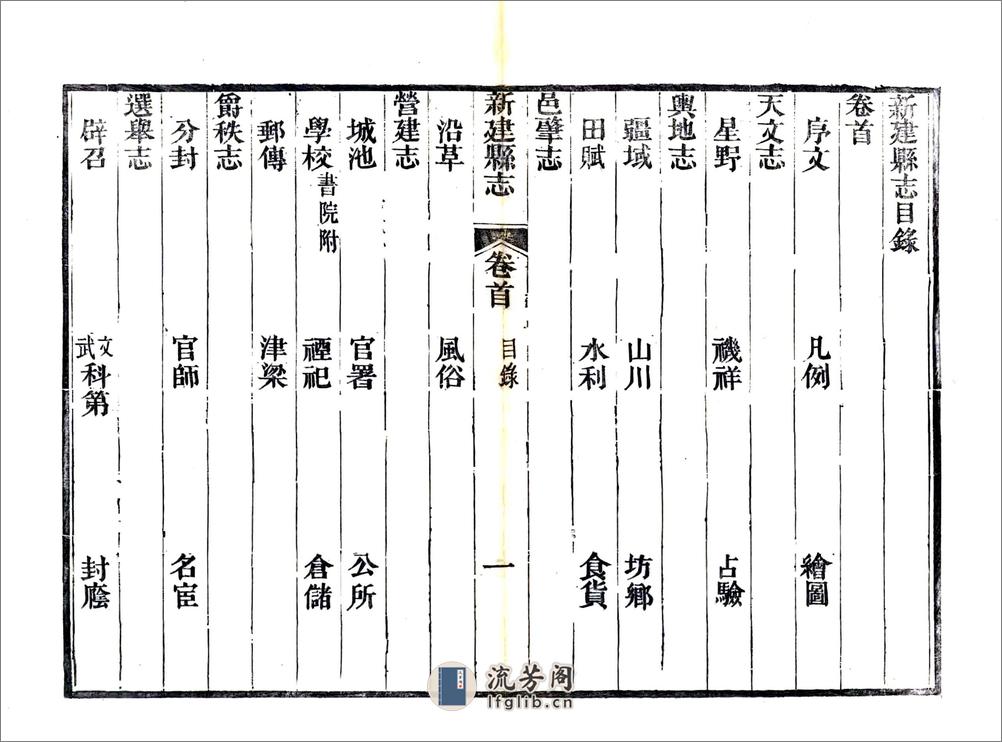 新建縣志目錄
卷首
序文 凡例 繪圖
天文志
星野 禨祥 占驗
輿地志
疆域 山川 坊鄉
田賦 水利 食貨
邑肇志
新建縣志 卷首 目錄 一
沿革 風俗
營建志
城池 官署 公所
學校書院附 禋祀 倉儲
郵傳 津梁
爵秩志
分封 官師 名宦
選舉志
辟召 文武科第 封廕
流芳阁
lfglib.cn